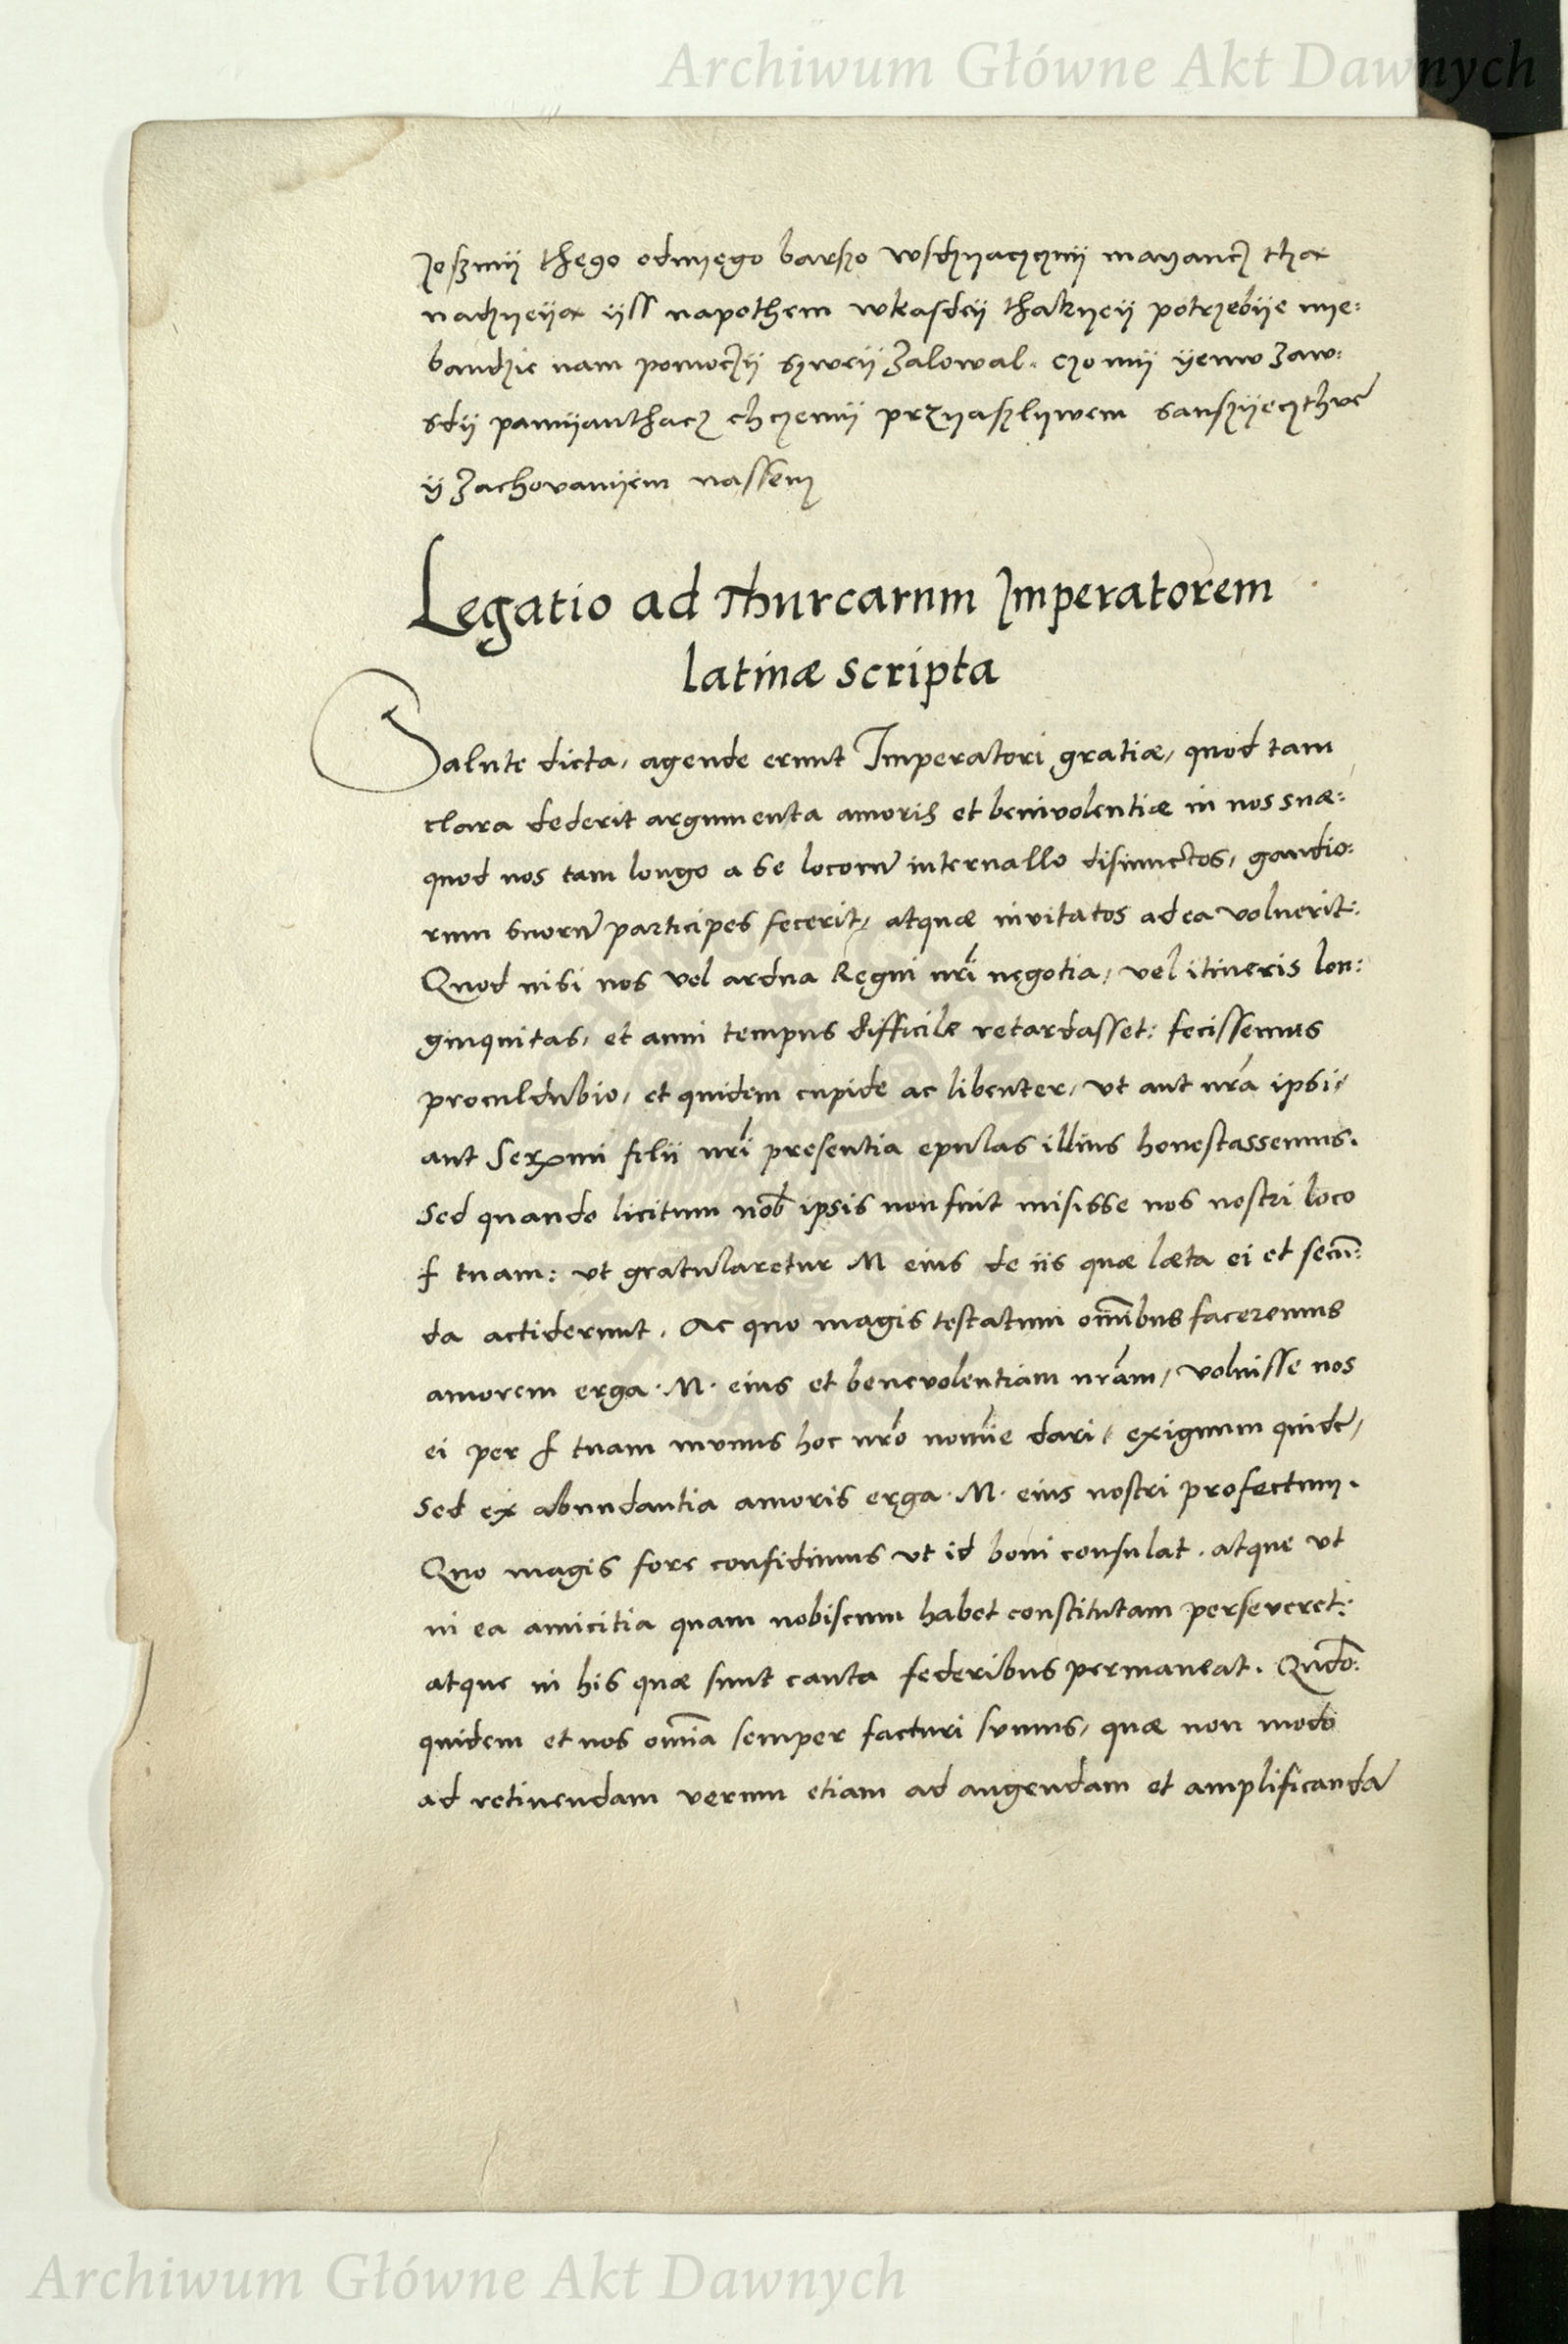 Archiwum Główne Akt Dawnych
Joszmij thęgo odnyęgo barszo wdzyaczymij mayancz tha
nadzyeija ijss napothem wkasdeij thakyeij potrzebije nye:
bandzie nam pomoczij szweij Zalowal. czo mij ijemv Zaw:
sdij pamijanthacz chczemij przyaszlywem sanszijeczthvē
ij Zachovanijem nassem
Legatio ad Thurcarum Imperatorem
latinæ scripta
Salute dicta, agende erunt Imperatori gratiæ, quod tam
clara dederit argumenta amoris et benivolentiæ in nos suæ:
quod nos tam longo a se locorū interuallo disiunctos, gaudio:
rum suorū participes fecerit, atquæ invitatos ad ea voluerit:
Quod nisi nos vel ardua Regni nrī negotia, vel itineris lon:
ginquitas, et anni tempus difficilæ retardasset: fecissemus
proculdubio, et quidem cupide ac libenter, vt aut nrā ipsi,
aut Serxmi filii nrī presentia epulas illius honestassemus.
Sed quando licitum nob ipsis non fuit misisse nos nostri loco
f tuam: vt gratularetur M eius de iis quæ læta ei et secū:
da actiderunt. Ac quo magis testatum om̄ibus faceremus
amorem erga M. eius et benevolentiam nrām, voluisse nos
ei per f tuam munus hoc nrō nomīe dari, exiguum quidē,
Sed ex abundantia amoris erga M. eius nostri profectum.
Quo magis fore confidimus vt id boni consulat. atque vt
in ea amicitia quam nobiscum habet constitutam perseveret:
atque in his quæ sunt cauta federibus permaneat. Quādo:
quidem et nos om̄ia semper facturi sumus, quæ non modo
ad retinendam verum etiam ad augendam et amplificandā
Archiwum Główne Akt Dawnych